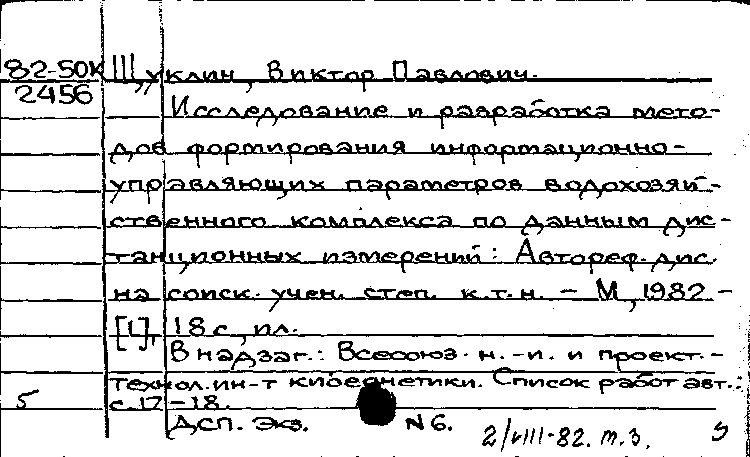 82-50К Щуклин, Виктор Павлович.
2456 Исследование и разработка мето-
дов формирования информационно-
управляющих параметров водохозяй-
ственного комплекса по данным дис-
танционных измерений: Автореф. дис.
на соиск. учен. степ. к.т.н. - М, 1982 -
[1], 18 с, ил.
В надзаг.: Всесоюз. н.-и. и проект.-
технол. ин-т кибернетики. Список работ авт.:
5 с. 17-18.
ДСП. Экз. N6. 2/VIII-82. т.3.